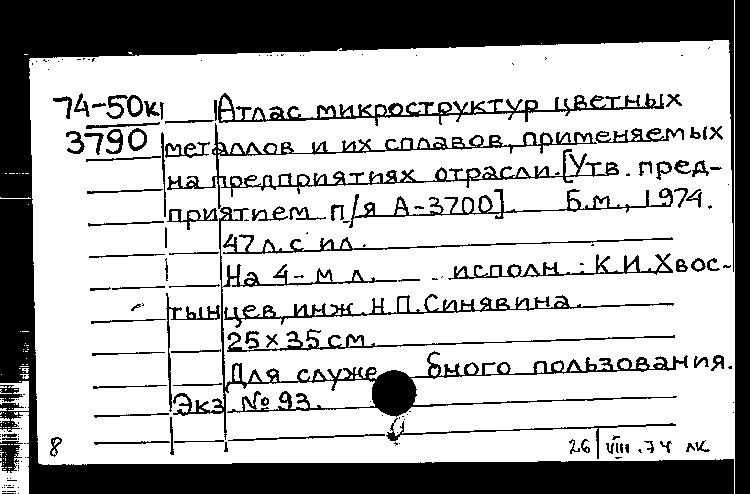 74-50к Атлас микроструктур цветных
3790 металлов и их сплавов, применяемых
на предприятиях отрасли. [Утв. пред-
приятием п/я А-3700]. Б.м., 1974.
47 л. с ил.
На 4-м л. исполн.: К.И.Хвос-
тынцев, инж. Н.П.Синявина.
25×35 см.
Для служебного пользования.
Экз. № 93.
8 26/VIII.74 лк